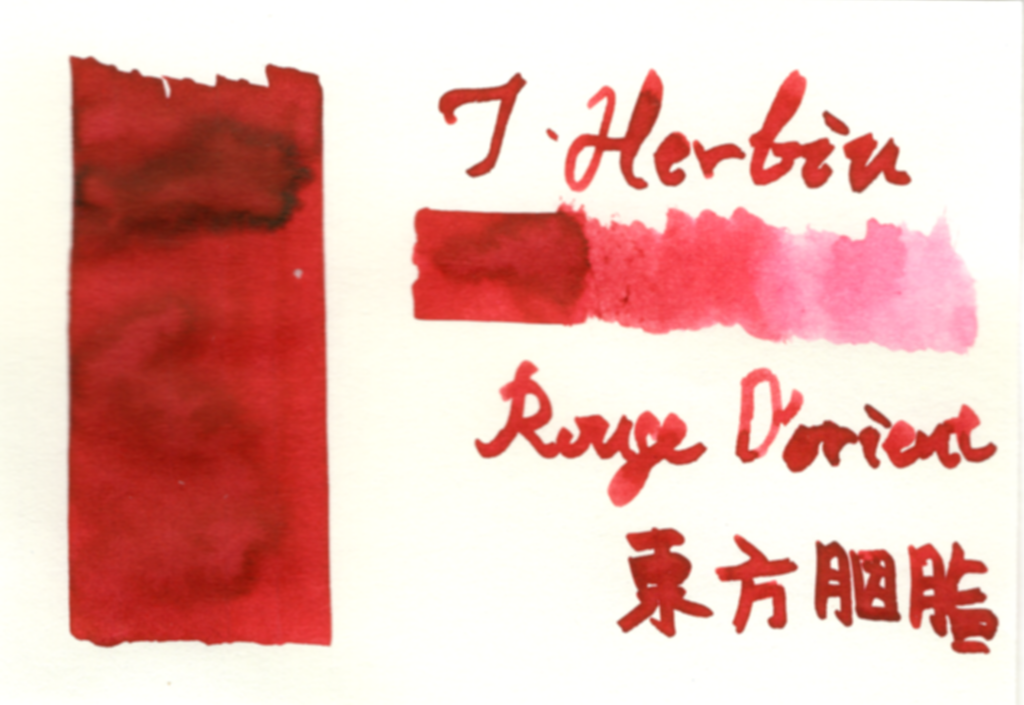 J. Herbin
Rouge D'orient
東方胭脂